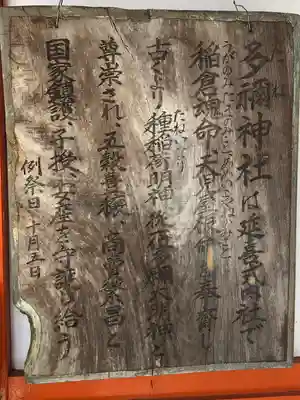 多禰神社は延喜式内社で
うがのみたまのみこと あめのこやねのみこと
稲倉魂命、天児屋根命を奉齋し
古来より種稼明神
たねいなり
と
尊崇され、五穀豊穣、商賣繁昌と
国家鎮護、子授、安産を守護し給う
例祭日、十月五日